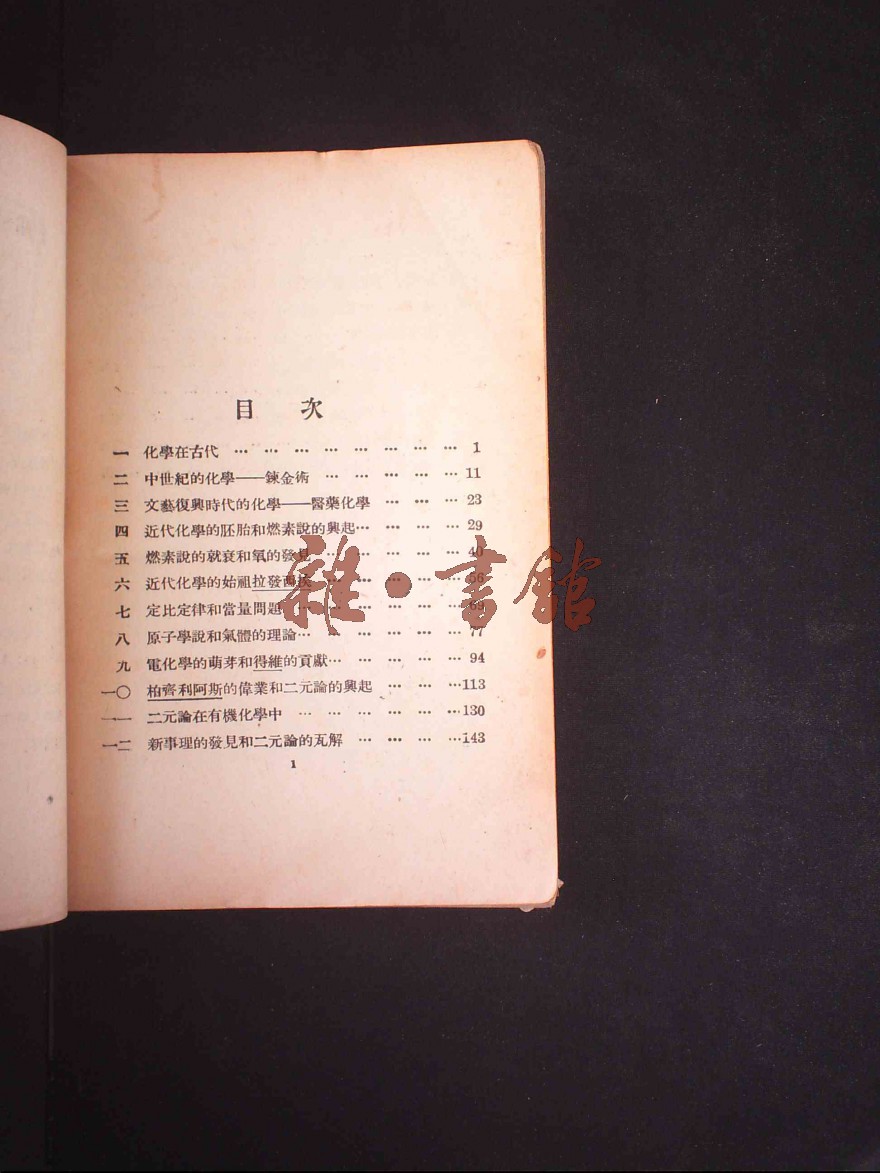 目 次
一 化學在古代 … … … … … … … … 1
二 中世紀的化學——鍊金術 … … … … …11
三 文藝復興時代的化學——醫藥化學 … … …23
四 近代化學的胚胎和燃素說的興起… … … …29
五 燃素說的就衰和氧的發見 … … … … …40
六 近代化學的始祖拉發西埃 … … … … …56
七 定比定律和當量問題 … … … … … …69
八 原子學說和氣體的理論… … … … … …77
九 電化學的萌芽和得維的貢獻… … … … …94
一〇 柏齊利阿斯的偉業和二元論的興起 … … …113
一一 二元論在有機化學中 … … … … … …130
一二 新事理的發見和二元論的瓦解 … … … …143
1
雜·書館